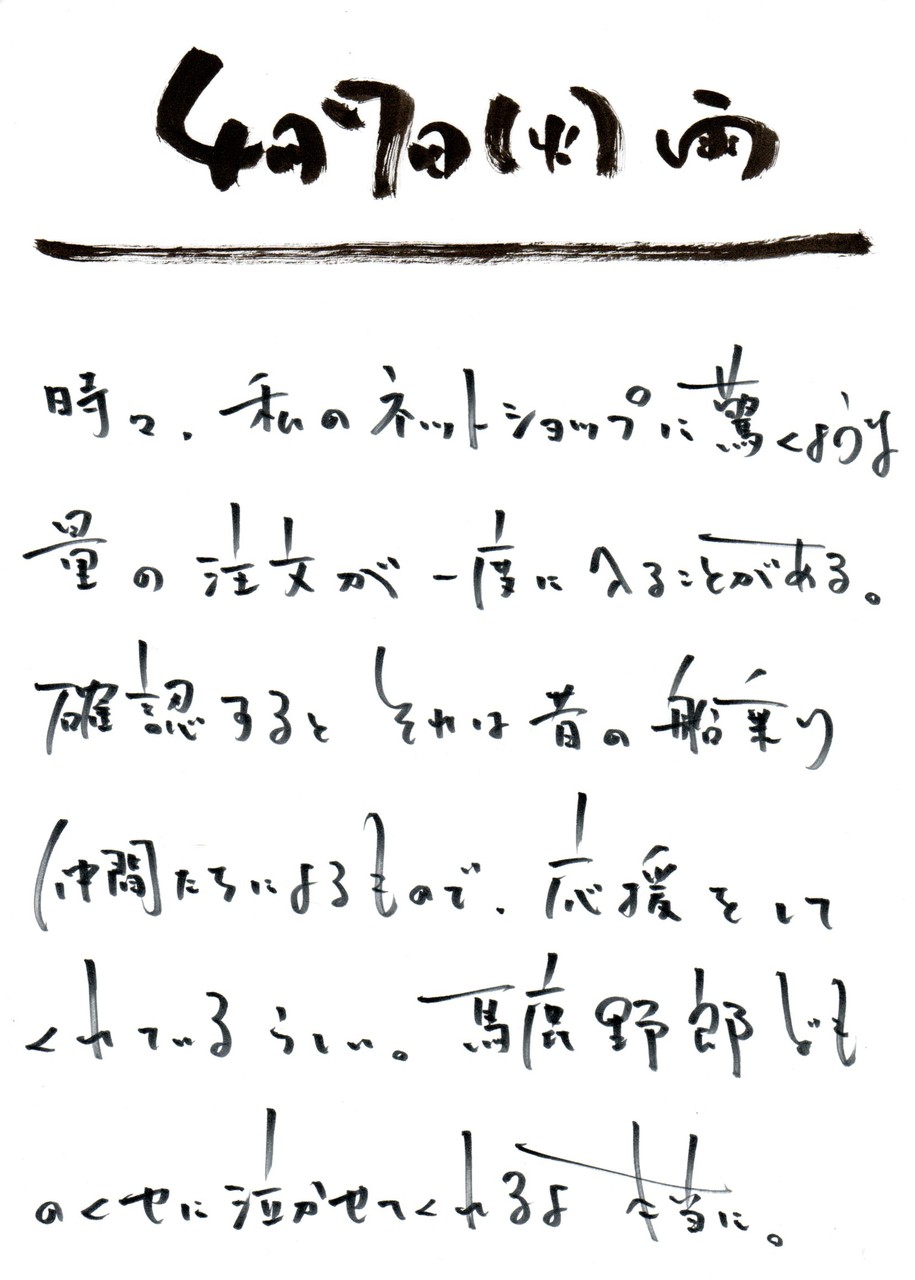 4月7日(火) 雨
時々、私のネットショップに驚くような
量の注文が一度に入ることがある。
確認すると それは昔の船乗り
仲間たちによるもので、応援をして
くれているらしい。馬鹿野郎ども
のくせに泣かせてくれるよ 本当に。